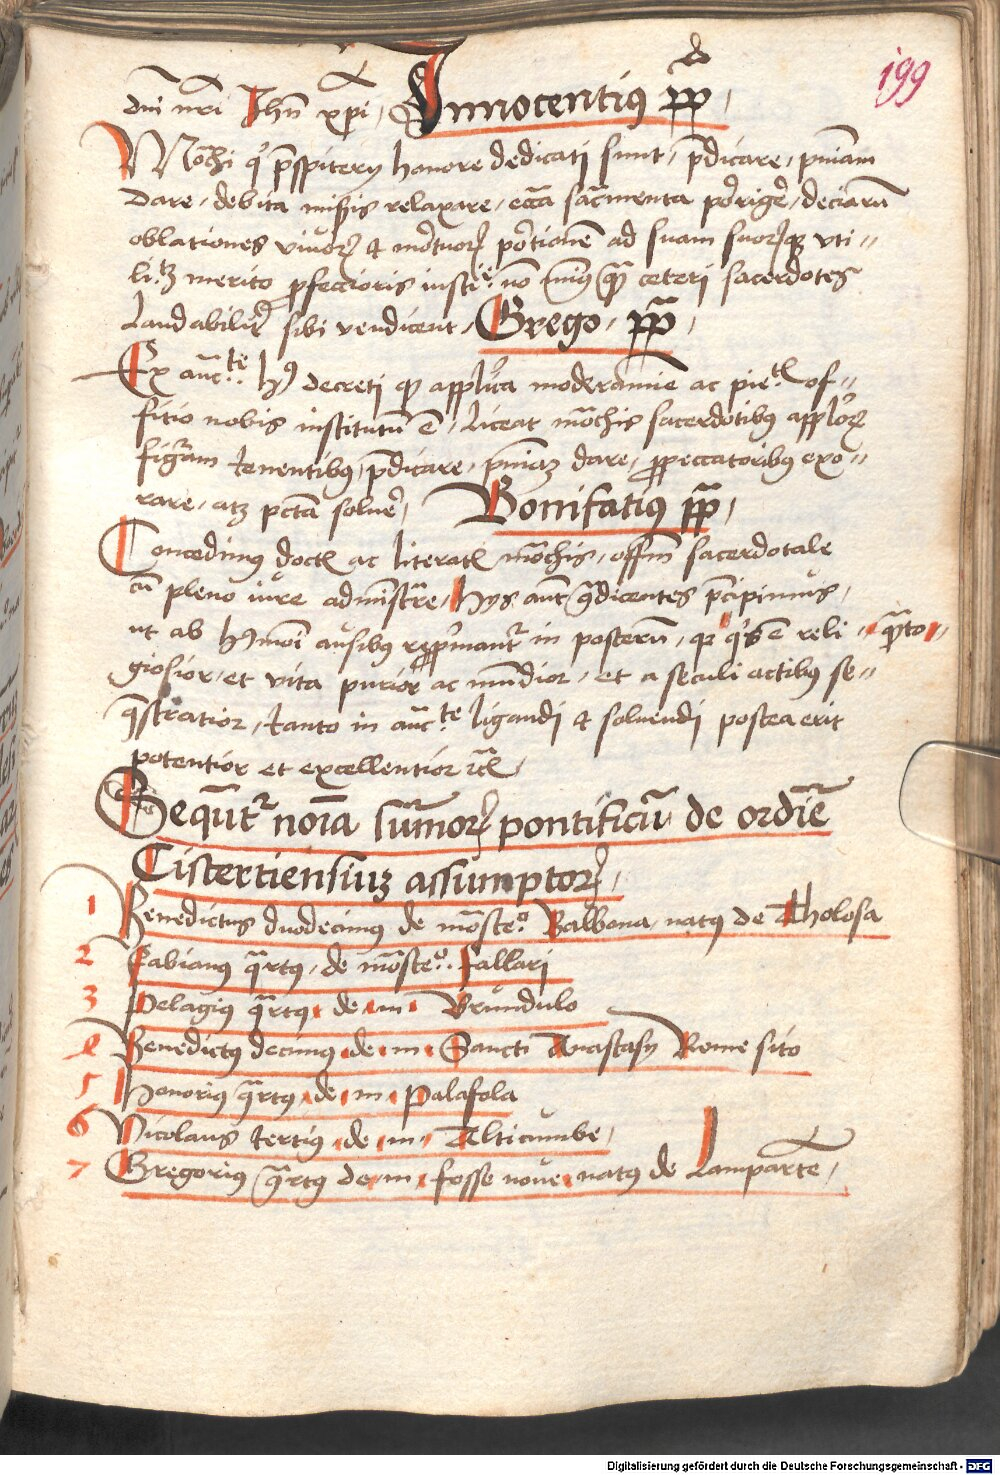 199
dni nri Ihu xpi, Innocentius pp,
Mochi q prspitery honore dedicati sunt, pdicare, pniam
dare, debita missis relaxare, ecca sacmenta porige, deciaru
oblationes vivor et mortuor portione ad suam suorqz uti-
litz merito pfeccioris iustie no minus qm ceteri sacerdotes
Laudabilit sibi vendicent, Grego, pp,
Ex aucte h9 decreti qd applica moderamie ac pietis of-
ficio nobis institutu e, Liceat mochis sacerdotibus applor
figuram tenentibus, pdicare, pniaz dare, p peccatoribus exo-
rare, atz pcta solue, Bonifatius pp,
Concedimus doctis ac literatis mochis, offm sacerdotale
cu pleno iure administrare, hys aut cotradicentes pcipimus,
ut ab h9moi ausibus reprimantur in posteru, qz qsq e reli- quato
giosior, et vita purior ac mundior, et a seculi actibus se-
questratior, tanto in aucte ligandi et solvendi postea erit
potentior et excellentior etc
Sequut noia sumor pontificu de ordie
Cistertiensiuz assumptor,
1 Benedictus duodecimus de moste. Balbona, natus de Tholosa
2 Fabianus quartus, de moste. Fallari
3 Pelagius quartus de m Brundulo
4 Benedictus decimus de m Sancti Anastasy Rome sito
5 Honorius quartus de m Palafola
6 Nicolaus tertius de m Alticumbe,
7 Gregorius quartus de m fosse nove natus de Lamparte,
Digitalisierung gefördert durch die Deutsche Forschungsgemeinschaft - DFG